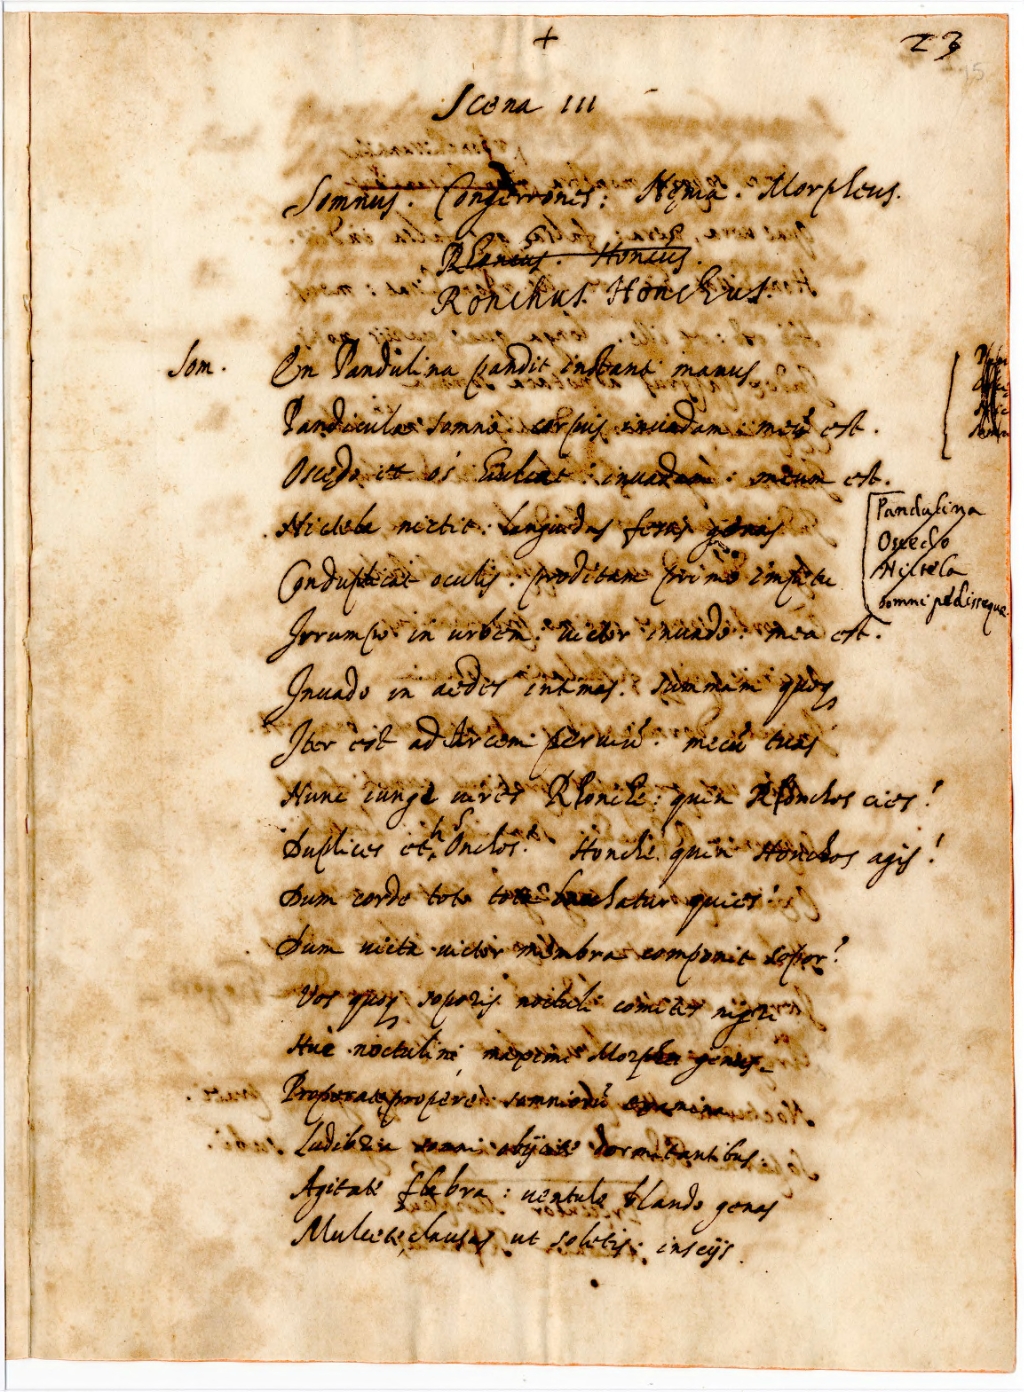 +
23
15
Scena III
Somnus. Congerrones: Morpheus.
Rhoncus. Honcus.
Ronchus. Honchus.
Som. En Pandulina pandit instant manus
Pandiculae somni corpus invadam: meũ est.
Oscedo et os hiulcat: invadam: meum est.
Nictela nictit: languidas fessis genas
Conduplicat oculis: proditam primo impetu
Irrumpo in urbem: victor invado: mea est.
Invado in aedes intimas. summam quoq
Iter est ad Arcem perviũ. mecũ tuas
Nunc iunge vires Rhonche: quin Rhonchos cies!
Duplices et hOnchos? Honche quin Honchos agis!
Dum corde toto quies!
Dum victa victor membra componit sopor?
Vos quoq soporis noctuli comites nigri
Huc noctulini maximi Morphei genus
Properate properè: somniorũ examina
Ludibria somni obijcite dormitantibus.
Agitate flabra: ventulo blando genas
Mulcete clausas ut soletis insciis.
Pandulina
Oscedo
Nictela
somni pedisseque